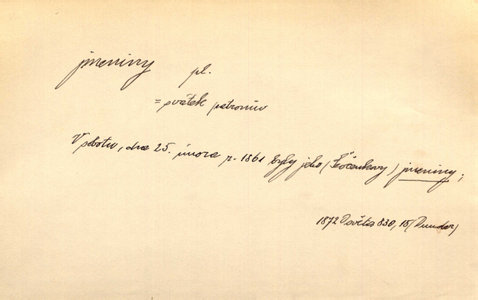 jmeniny pl.
= svátek patronův
V sobotu, dne 25. února r. 1861 byly jeho ( ) jmeniny;
1872 Osvěta 830, 15 (Dunder)